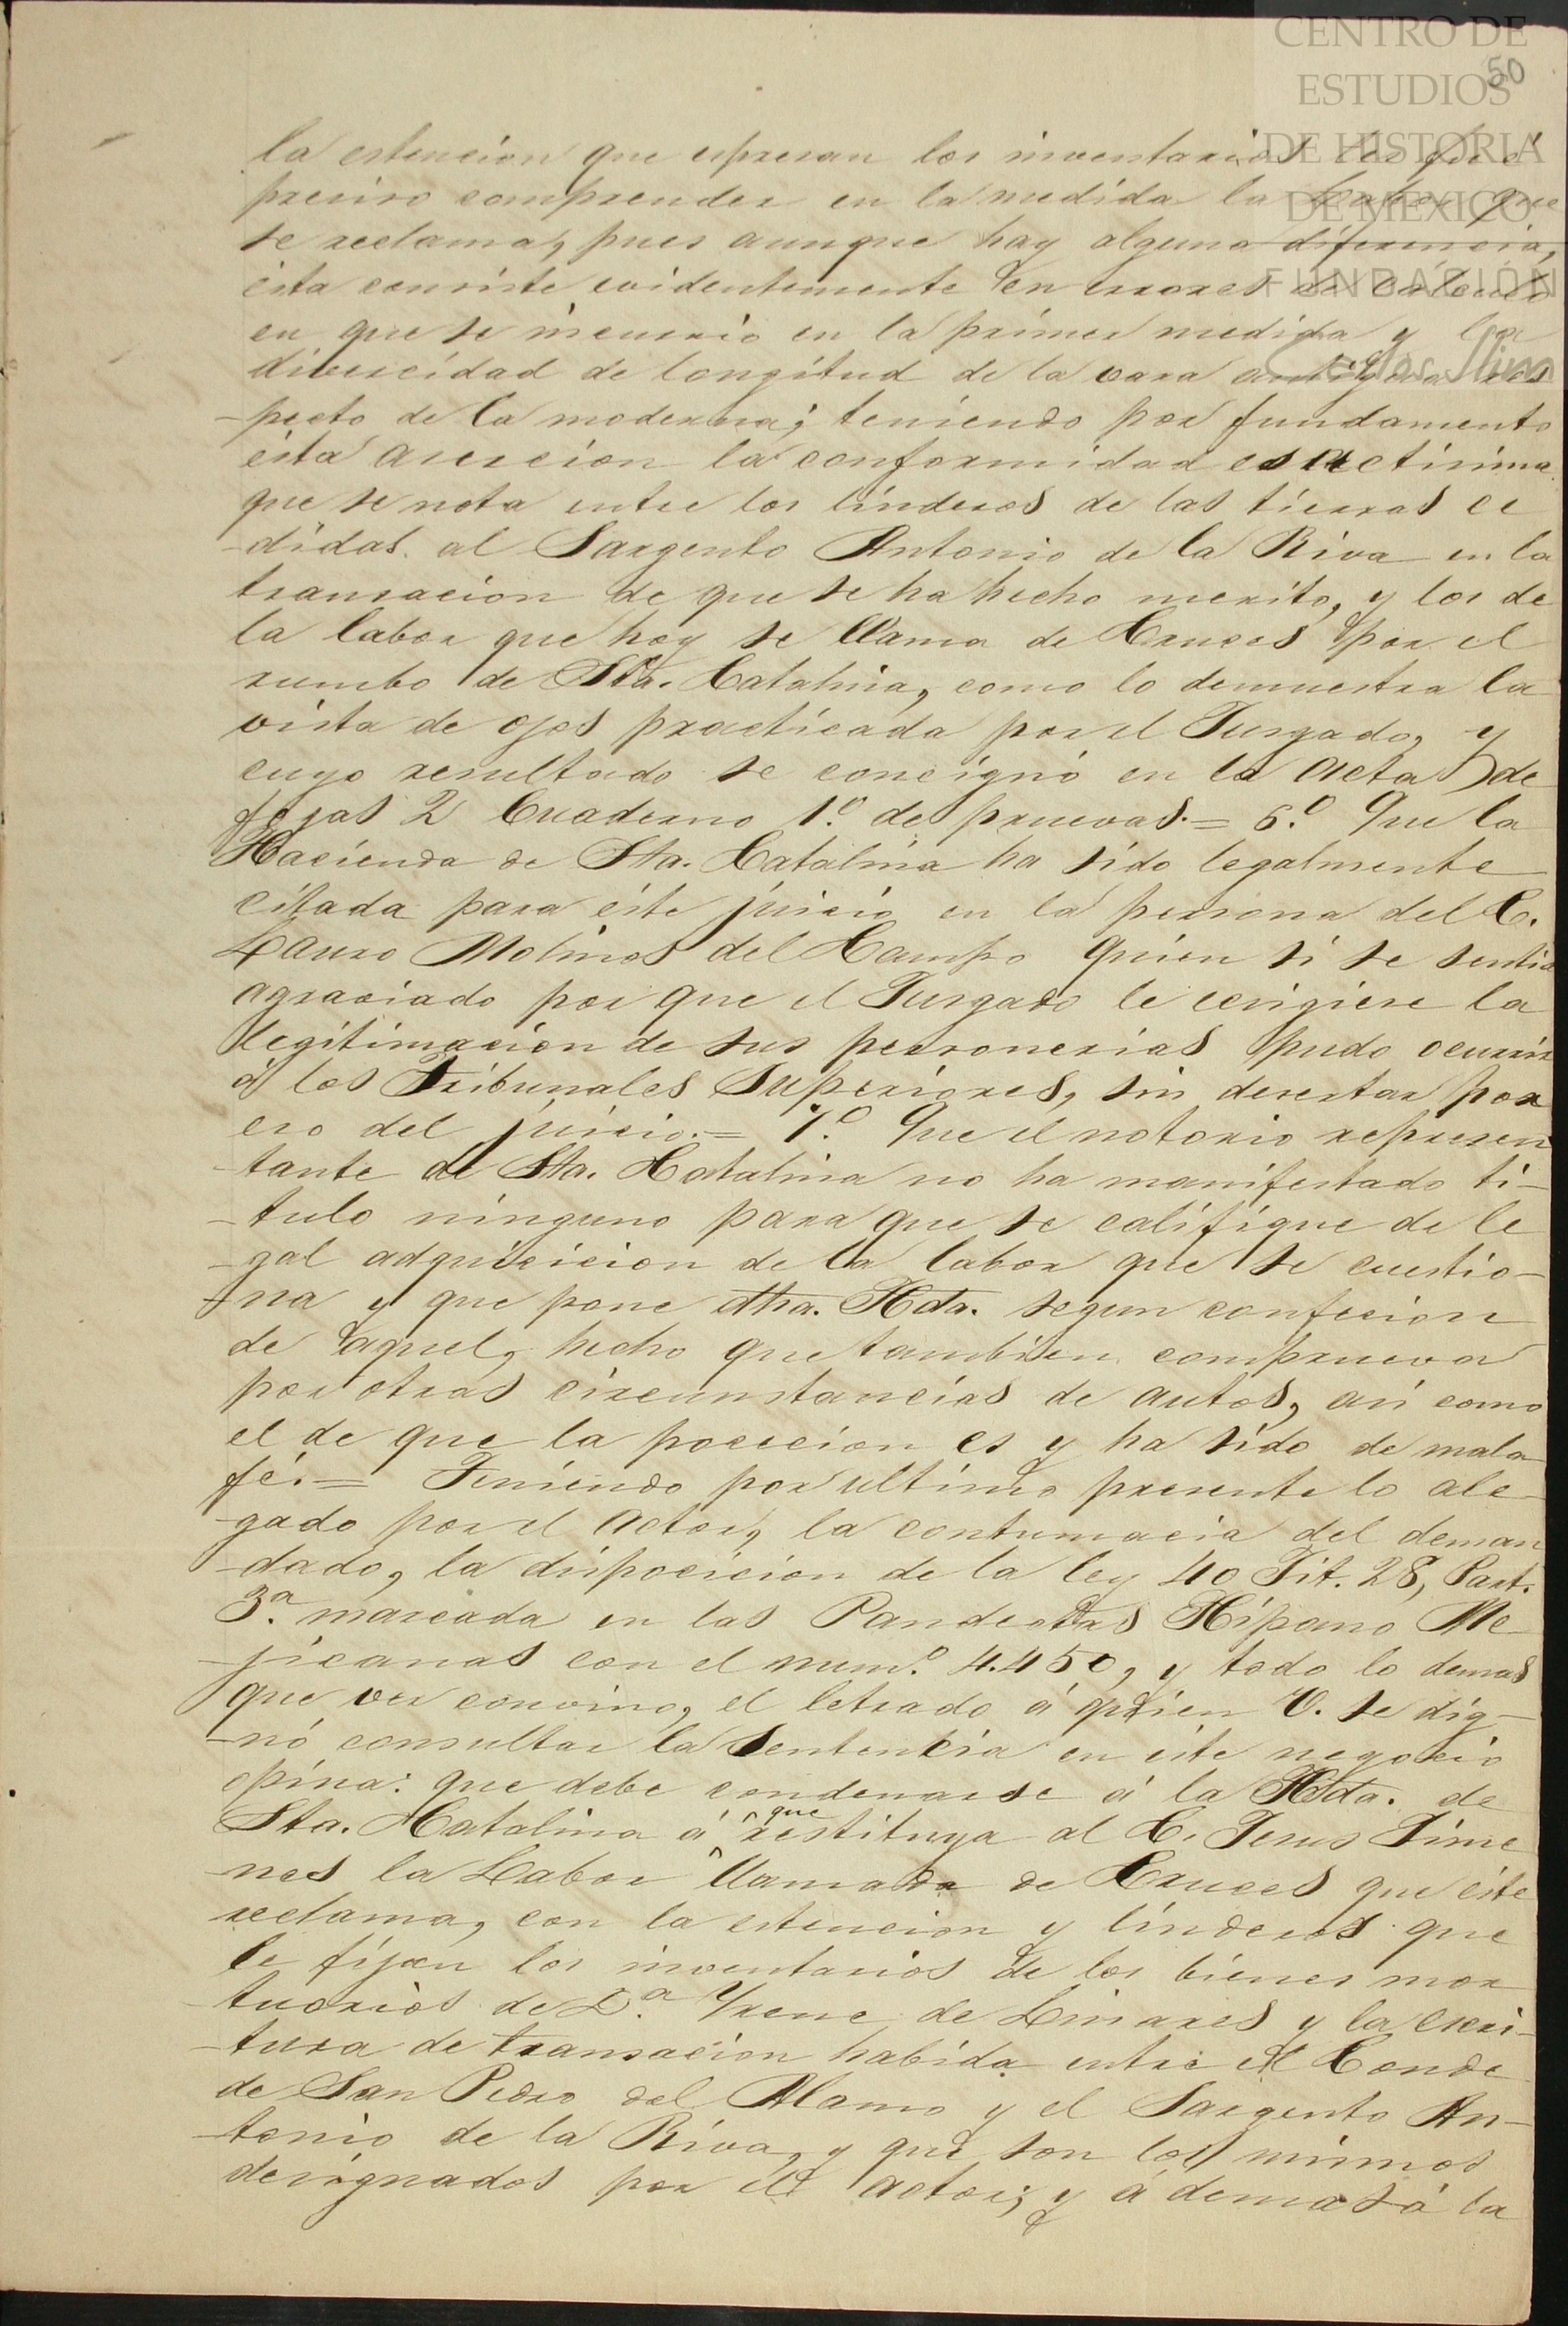 CENTRO DE
ESTUDIOS
DE HISTORIA
DE MEXICO
FUNDACIÓN
Carlos Slim
50
la estencion que espresan los inventarios es
preciso comprender en la medida la que
se reclama, pues aunque hay alguna diferencia,
ésta consiste evidentemente en errores de
en que se incurrio en la primer medida y la
divercidad de longitud de la vara antigua res
-pecto de la moderna; teniendo por fundamento
ésta asercion la conformidad esactisima
que se nota entre los linderos de las tierras ce
-didas al Sargento Antonio de la Riva en la
transacion de que se ha hecho merito, y los de
la labor que hoy se llama de Cruces por el
rumbo de Sta. Catalina, como lo demuestra la
vista de ojos practicada por el Jusgado, y
cuyo resultado se concignó en la acta de
fojas 2 Cuaderno 1.º de pruevas.= 6.º Que la
Hacienda de Sta. Catalina ha sido legalmente
citada para éste juicio en la persona del C.
Lauro Molinos del Campo quien si se sentia
agraviado por que el Jusgado le ecsigiere la
legitimacion de sus personerias pudo ocurrir
á los Tribunales Superiores, sin desertar por
eso del juicio.= 7.º Que el notorio represen
-tante de Sta. Catalina no ha manifestado ti-
-tulo ninguno para que se califique de le
-gal adquicicion de la labor que se cuestio-
-na y que pone dha. Hda. segun confecion
de aquel, hecho que tambien comprueva
por otras circunstancias de autos, asi como
el de que la pocecion es y ha sido de mala
fé.= Teniendo por ultimo presente lo ale-
-gado por el actor, la contumacia del deman
-dado, la dispocicion de la ley 40 Tit. 28, Part.
3.ª marcada en las Pandectas Hipano Me-
-jicanas con el num.º 4.450, y todo lo demas
que ver convino, el letrado á quien V. se dig-
-nó consultar la Sentencia en éste negocio
opina: que debe condenarse á la Hda. de
Sta. Catalina á que restituya al C. Jesus Jime
-nes la Labor llamada de Cruces que éste
reclama, con la estencion y linderos que
le fijan los inventarios de los bienes mor
-tuorios de D.ª Yrene de Linares y la escri-
-tura de transacion habida entre el Conde
de San Pedro del Alamo y el Sargento An-
-tonio de la Riva, y que son los mismos
designados por el actor; y á demas á la